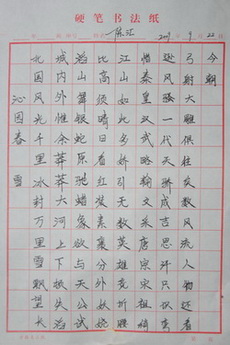 硬笔书法纸
沁园春 雪
北国风光千里冰封万里雪飘望长
城内外惟余莽莽大河上下顿失滔
滔山舞银蛇原驰蜡象欲与天公试
比高须晴日看红装素裹分外妖娆
江山如此多娇引无数英雄竞折腰
惜秦皇汉武略输文采唐宗宋祖稍
逊风骚一代天骄成吉思汗只识弯
弓射大雕俱往矣数风流人物还看
今朝